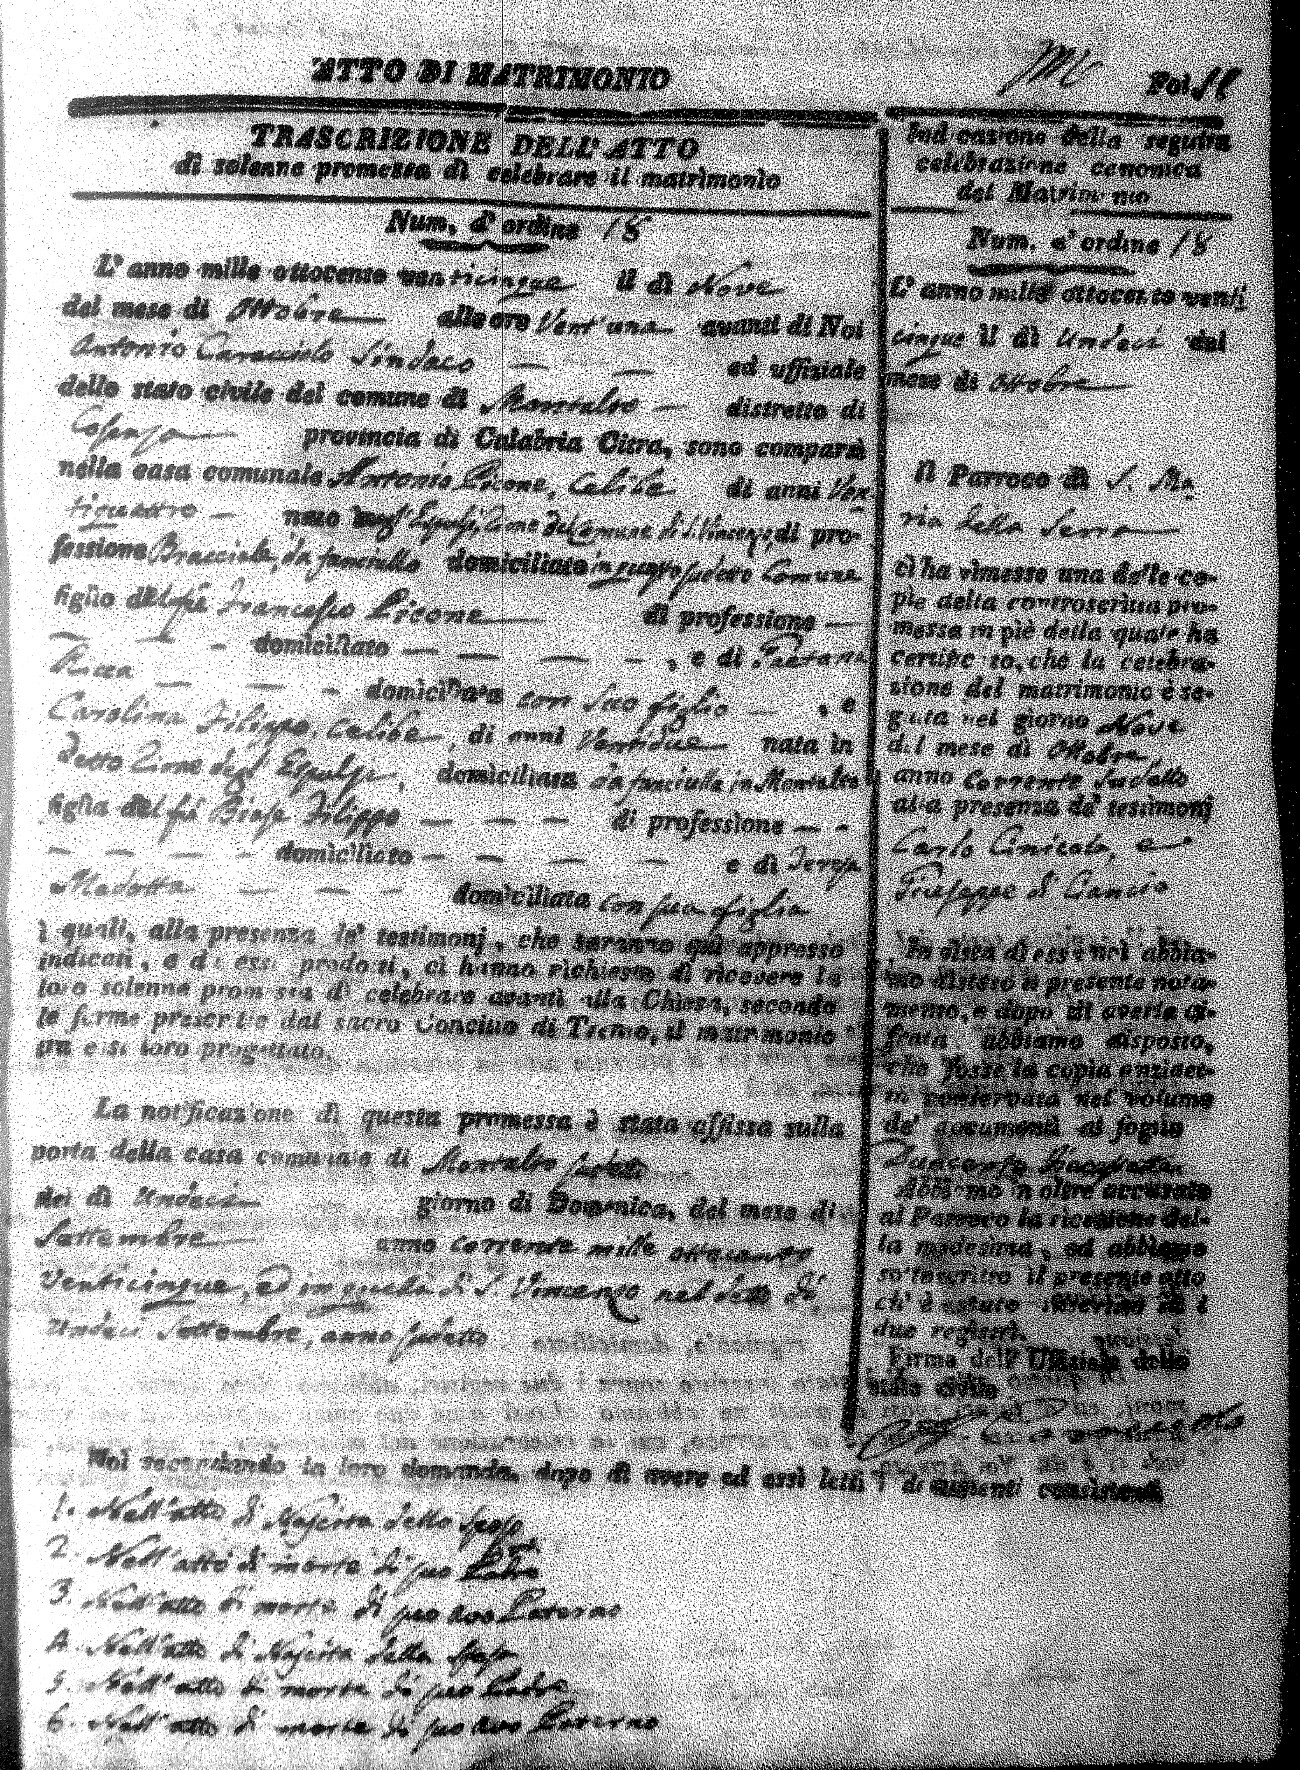 ATTO DI MATRIMONIO
Fol.
TRASCRIZIONE DELL'ATTO
di solenne promessa di celebrare il matrimonio
Num. d'ordine 18
L'anno mille ottocento venticinque il dì Nove
del mese di Ottobre alle ore Vent'una avanti di Noi
Antonio Caracciolo Sindaco ed uffiziale
dello stato civile del comune di Montalto distretto di
Cosenza provincia di Calabria Citra, sono comparsi
nella casa comunale Antonio Picone, Celibe di anni Ven
tiquattro nato Espulsi, del Comune di S. Vincenzo, di pro-
fessione Bracciale, da fanciullo domiciliato in sudetto Comune
figlio del fù Francesco Picone di professione
domiciliato , e di Gaetana
Ricca domiciliata con suo figlio , e
Carolina Filippo, celibe, di anni Ventidue nata in
detto degl' Espulsi, domiciliata da fanciulla in Montalto
figlia del fù Biase Filippo di professione
domiciliato e di Teresa
Madotta domiciliata con sua figlia
i quali, alla presenza de' testimonj, che saranno quì appresso
indicati, e da essi prodotti, ci hanno richiesto di ricevere la
loro solenne promessa di celebrare avanti alla Chiesa, secondo
le forme prescritte dal sacro Concilio di Trento, il matrimonio
tra essi loro progettato.
La notificazione di questa promessa è stata affissa sulla
porta della casa comunale di Montalto sudetto
nel dì Undeci giorno di Domenica, del mese di
Settembre anno corrente mille ottocento
Venticinque, ed in quella di S. Vincenzo nel detto dì
Undeci Settembre, anno sudetto
Noi secondando la loro domanda, dopo di avere ad essi letti i documenti consistenti
1. Nell'atto di Nascita dello sposo
2. Nell'atto di morte di suo Padre
3. Nell'atto di morte di suo Avo Paterno
4. Nell'atto di Nascita della sposa
5. Nell'atto di morte di suo Padre
6. Nell'atto di morte di suo Avo Paterno
Indicazione della seguita
celebrazione canonica
del Matrimonio
Num. d'ordine 18
L'anno mille ottocento venti
cinque il dì Undeci del
mese di Ottobre
Il Parroco di S. Ma
ria della Serra
ci ha rimesso una delle co-
pie della controscritta pro-
messa in piè della quale ha
certificato, che la celebra-
zione del matrimonio è se-
guita nel giorno Nove
del mese di Ottobre
anno corrente sudetto
alla presenza de' testimonj
Carlo Cinicolo, e
Giuseppe d'
In vista di essa noi abbia-
mo disteso il presente nota-
mento, e dopo di averla ci-
frata abbiamo disposto,
che fosse la copia anzidet-
ta conservata nel volume
de' documenti al foglio
Abbiamo in oltre accusato
al Parroco la ricezione del-
la medesima, ed abbiamo
sottoscritto il presente atto
ch' è stato inscritto su i
due registri.
Firma dell' Uffiziale dello
stato civile